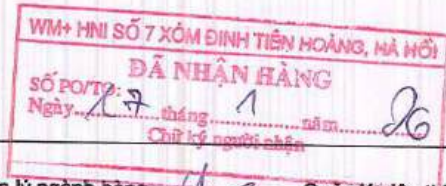 WM+ HNI SỐ 7 XÓM ĐINH TIÊN HOÀNG, HÀ HỒI
ĐÃ NHẬN HÀNG
SỐ PO/TO:
Ngày 27 tháng 1 năm 26
Chữ ký người nhận